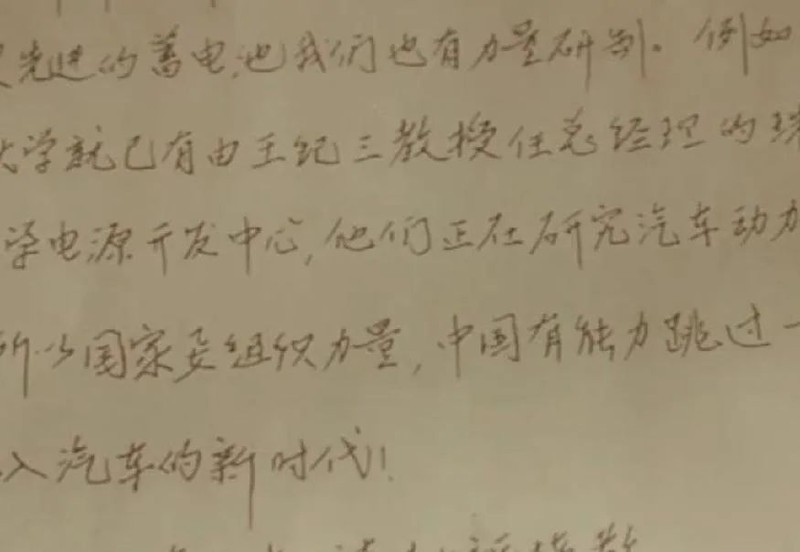 先进的蓄电池我们也有力量研制。例如
大学就已有由王纪三教授任总经理的
学电源开发中心,他们正在研究汽车动力
所以国家要组织力量,中国有能力跳过一
入汽车的新时代!